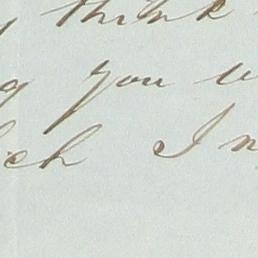 think
you
ch I